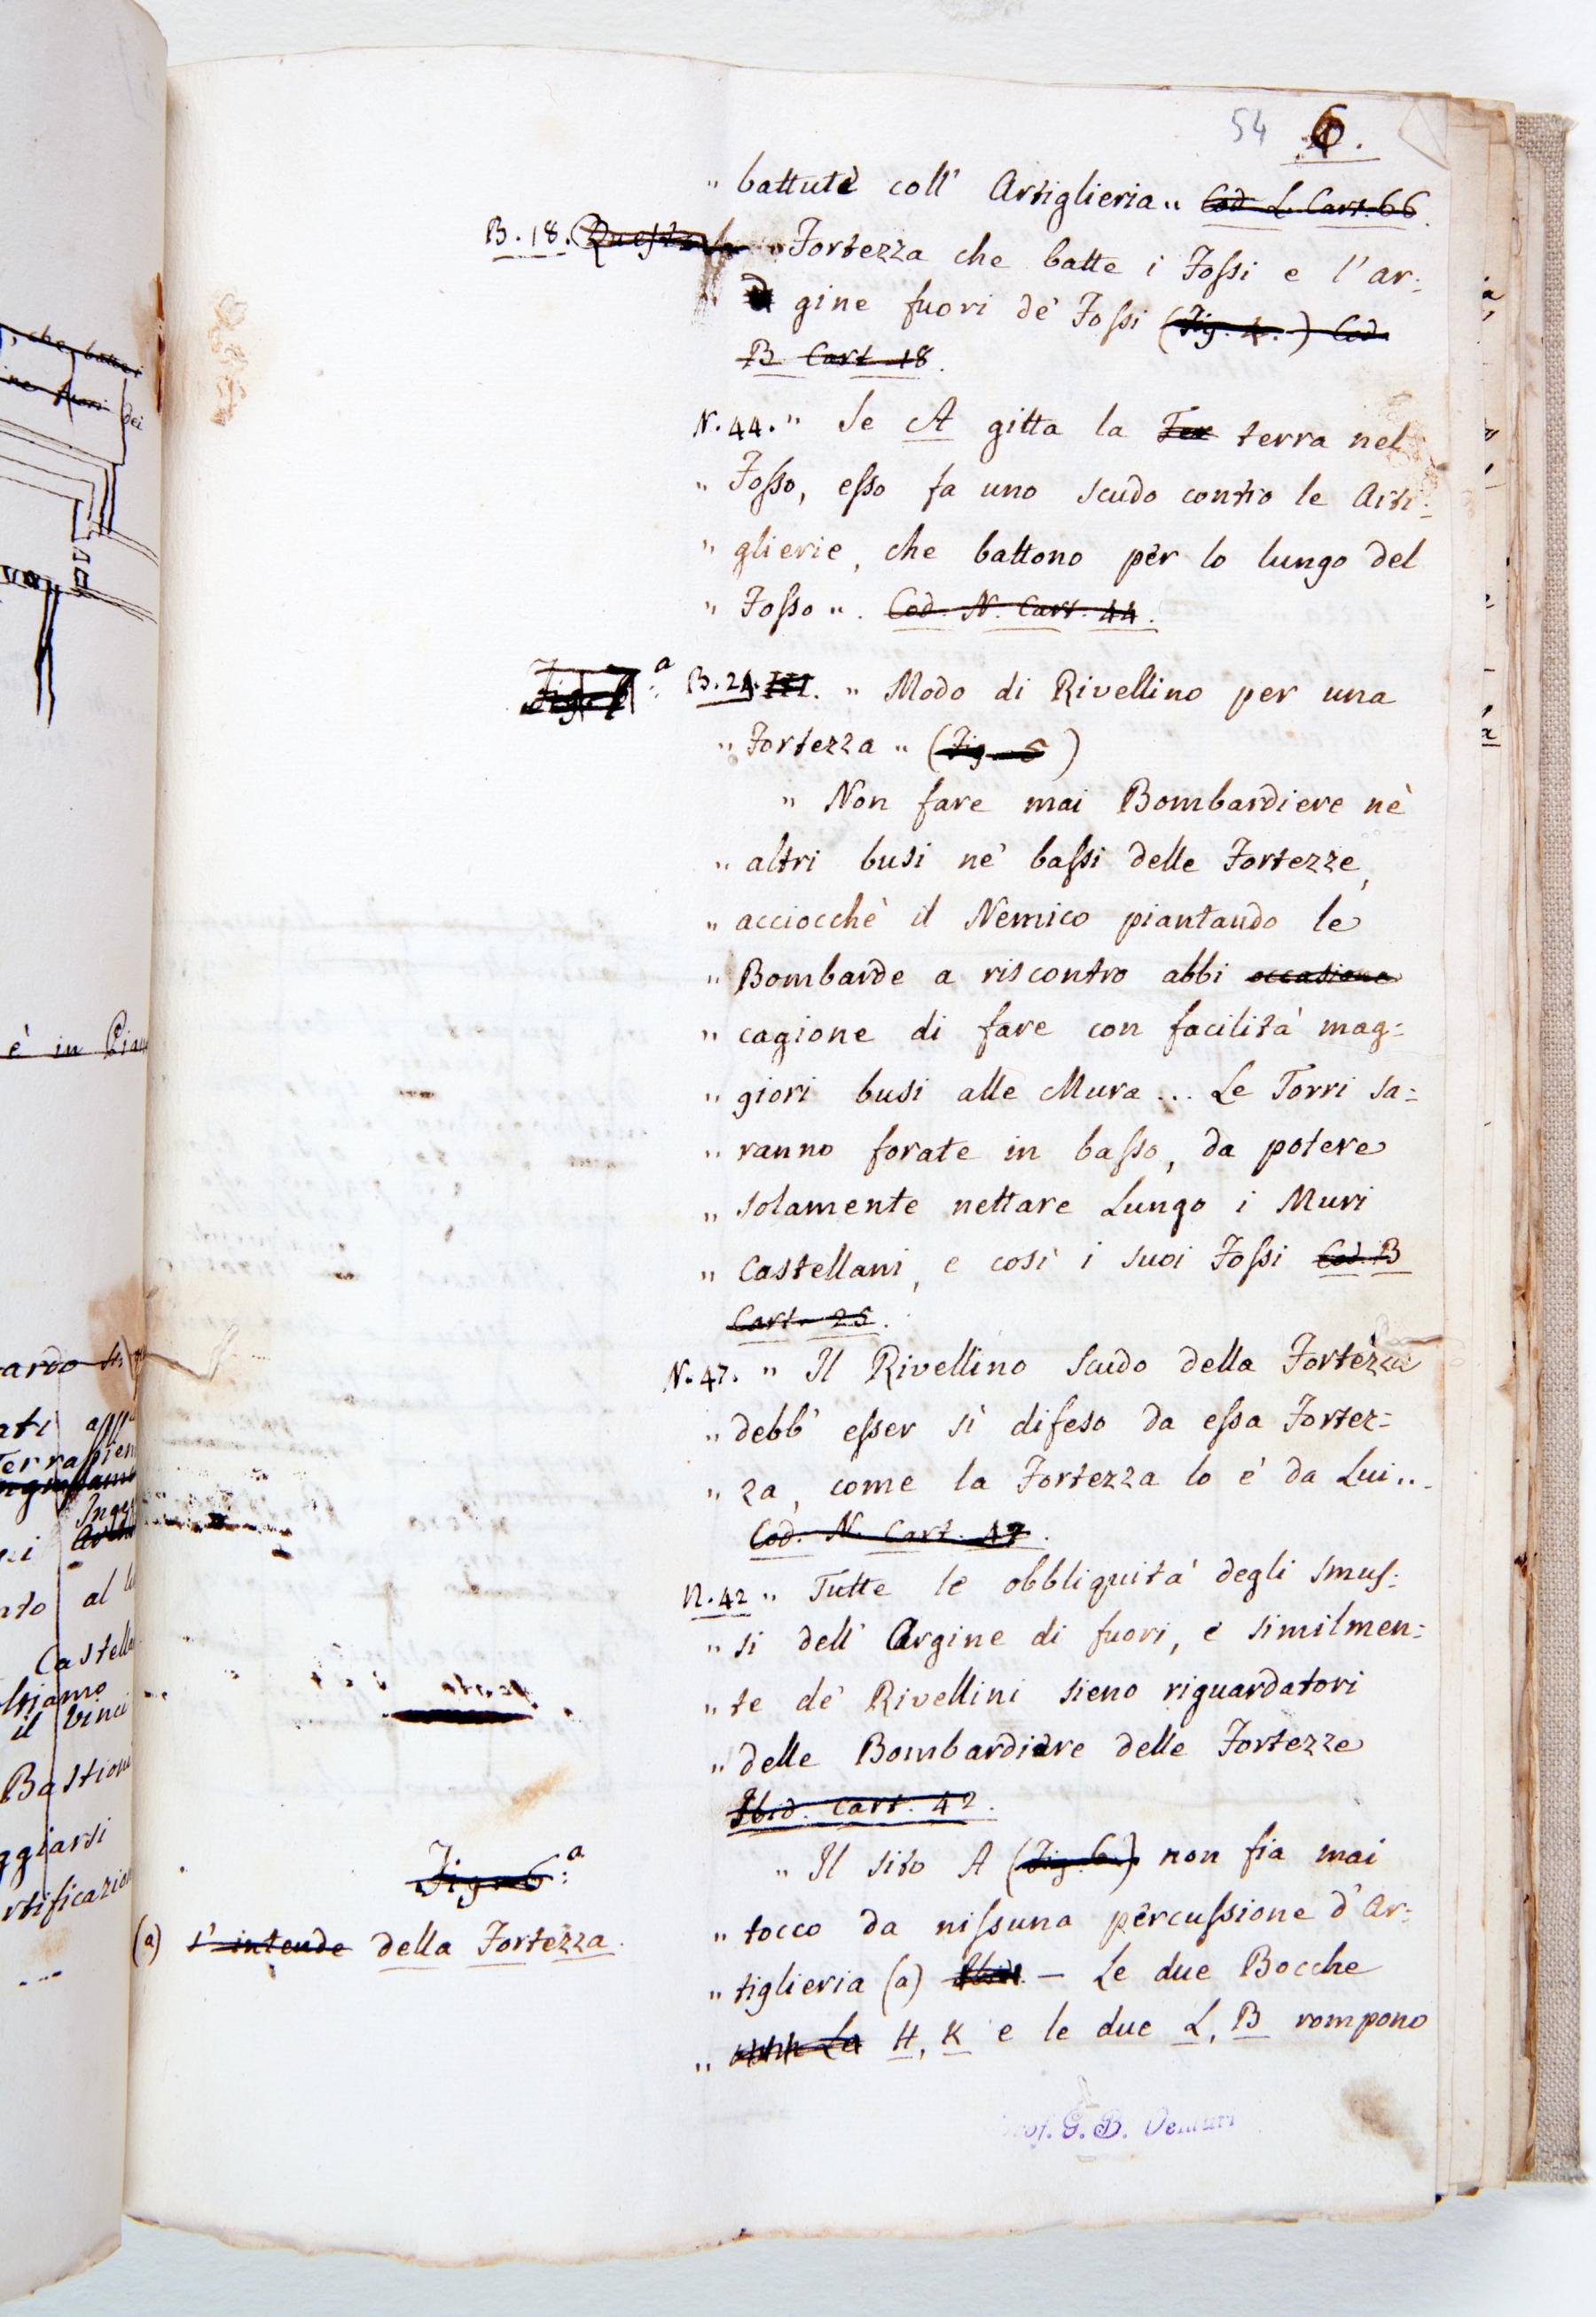 54 6.
" battute coll' Artiglieria " Cod. L. Cart. 66.
B. 18. Questa " Fortezza che batte i Fossi e l'ar-
gine fuori de' Fossi (Fig. 4.) Cod.
B Cart 18.
N. 44. " Se A gitta la Ter terra nel
" Fosso, esso fa uno scudo contro le Arti-
" glierie, che battono per lo lungo del
" Fosso ". Cod. N. Cart. 44.
B. 24. III. " Modo di Rivellino per una
" Fortezza " (Fig. 5)
" Non fare mai Bombardiere nè
" altri busi ne' bassi delle Fortezze,
" acciocchè il Nemico piantando le
" Bombarde a riscontro abbi occasione
" cagione di fare con facilità mag-
" giori busi alle Mura ... Le Torri sa-
" ranno forate in basso, da potere
" solamente nettare Lungo i Muri
" Castellani, e così i suoi Fossi Cod. B
Cart. 25.
N. 47. " Il Rivellino Scudo della Fortezza
" debb' esser sì difeso da essa Fortez-
" za, come la Fortezza lo è da Lui "
Cod. N. Cart. 47.
N. 42 " Tutte le obbliquità degli smus-
" si dell' Argine di fuori, e similmen-
" te de' Rivellini sieno riguardatori
" delle Bombardiere delle Fortezze
Ibid. Cart. 42.
" Il sito A (Fig. 6.) non fia mai
Fig. 6.a
" tocco da nissuna percussione d'Ar-
(a) s'intende della Fortezza.
" tiglieria (a) Ibid. — Le due Bocche
" La H, K e le due L, B rompono
Prof. G. B. Venturi
è in Pian
Castell
il Vinci
Bastioni